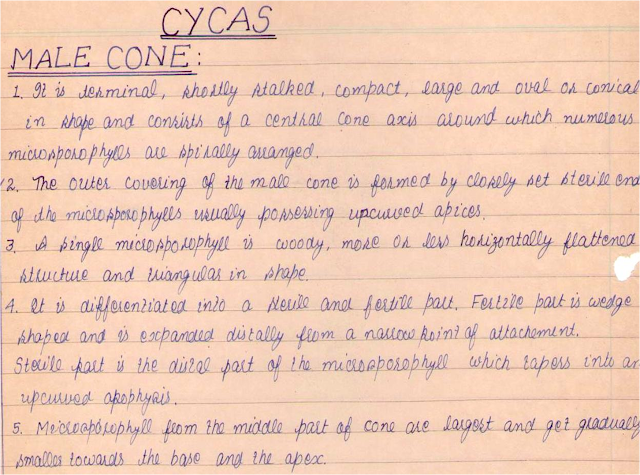 CYCAS
MALE CONE:
1. It is terminal, shortly stalked, compact, large and oval or conical
in shape and consists of a central cone axis around which numerous
microsporophylls are spirally arranged.
2. The outer covering of the male cone is formed by closely set sterile end
of the microsporophylls usually possessing upcurved apices.
3. A single microsporophyll is woody, more or less horizontally flattened
structure and triangular in shape.
4. It is differentiated into a sterile and fertile part. Fertile part is wedge
shaped and is expanded distally from a narrow point of attachement.
Sterile part is the distal part of the microsporophyll which tapers into an
upcurved apophysis.
5. Microsporophyll from the middle part of cone are largest and get gradually
smaller towards the base and the apex.